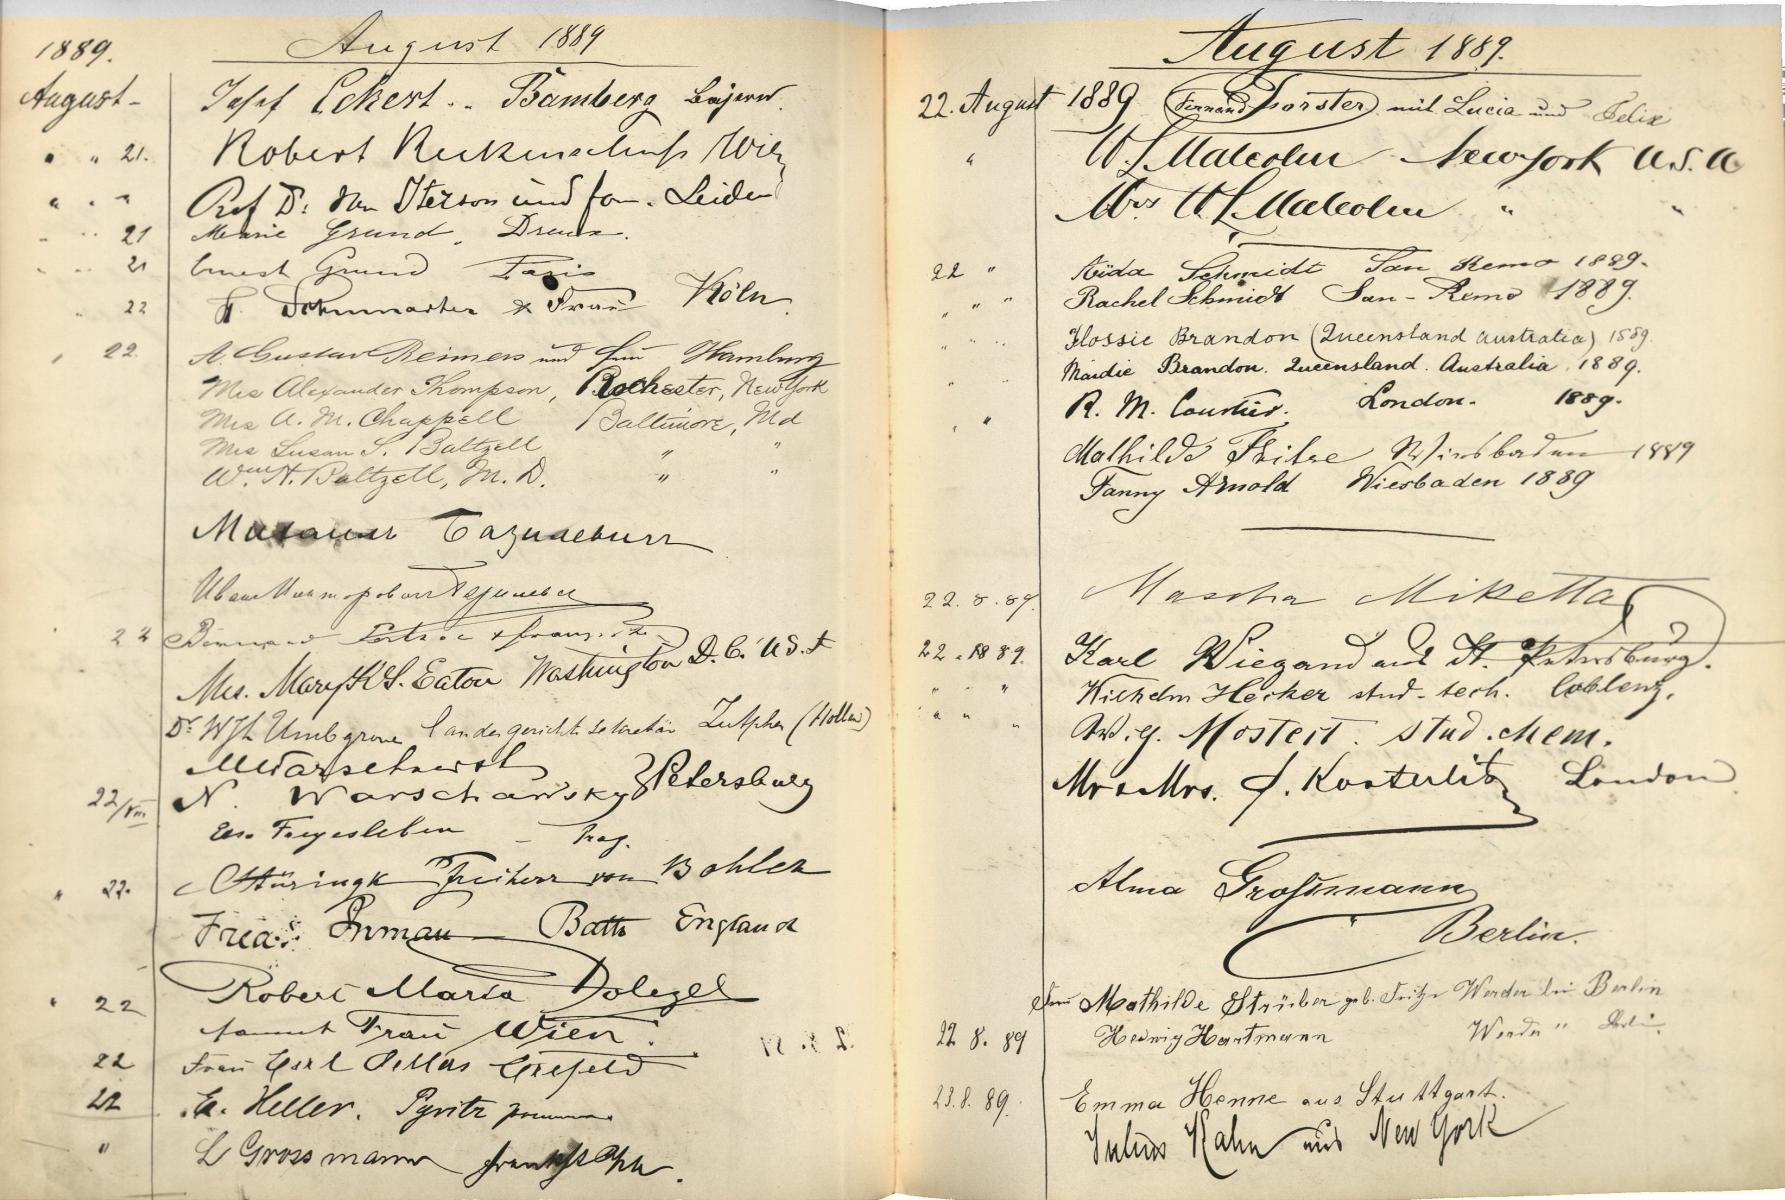 1889. August 1889
August - Josef Eckert .. Bamberg Bajern.
" " 21. Robert Wien
" " " Prof Dr. van Iterson und fam. Leiden
" " 21 Marie Grund, Dreux.
" " 21 Ernest Grund Paris
" 22 & Frau Köln.
" 22. A. Gustav Reimers und Frau Hamburg
Mrs Alexander Thompson, Rochester, New York
Mrs A. M. Chappell Baltimore, Md
Mrs Susan S. Baltzell " "
Wm. H. Baltzell, M. D. " "
Базилевич
Иван Базилевск
22
Mrs. Mary K. S. Eaton Washington D. C. U. S. A
Dr WJH Umbgrove Landesgerichts Sekretär Zutphen (Holland)
M Warschawsky
22/VIII N. Warschawsky } Petersburg
Freyesleben - Prag.
" 22. Freiherr von Bohlen
Fred. Inman Bath England
" 22 Robert Maria Dolezel
sammt Frau Wien.
22 Frau Carl Crefeld
22 E. Heller. Pyritz Pommern
" L Grossmann
August 1889.
22. August 1889 Fernand Forster mit Lucia und Felix
" W. L Malcolm New York U.S.A
Mrs W. L Malcolm " "
22 " Aïda Schmidt San Remo 1889.
" " Rachel Schmidt San-Remo 1889.
" " Flossie Brandon (Queensland Australia) 1889.
" " Maidie Brandon. Queensland. Australia. 1889.
" " R. M. Courtier. London. 1889.
Mathilde Fritze Wiesbaden 1889
Fanny Arnold Wiesbaden 1889
22. 8. 89. Mascha Miketta
22. 1889. Karl Wiegand aus St. Petersburg.
" " Wilhelm Hecker stud. tech. Coblenz.
" " " W. G. Mostert. stud. chem.
Mr & Mrs. J. Kosterlitz London
Alma Großmann
Berlin.
Frau Mathilde Strüber geb. Fritze Werder bei Berlin
22. 8. 89 Hedwig Hartmann Werder " Berlin.
23. 8. 89. Emma Henne aus Stuttgart.
Julius Kahn aus New York